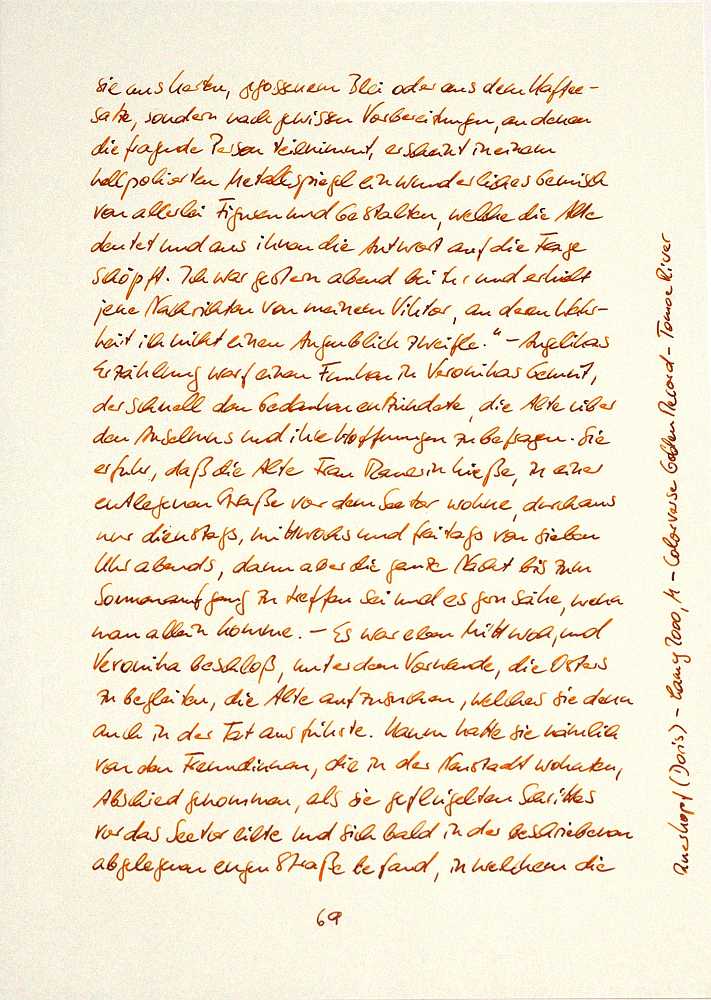 sie aus Karten, gegossenem Blei oder aus dem Kaffee-
satze, sondern nach gewissen Vorbereitungen, an denen
die fragende Person teilnimmt, erscheint in einem
hellpolierten Metallspiegel ein wunderliches Gemisch
von allerlei Figuren und Gestalten, welche die Alte
deutet und aus ihnen die Antwort auf die Frage
schöpft. Ich war gestern abend bei ihr und erhielt
jene Nachrichten von meinem Viktor, an deren Wahr-
heit ich nicht einen Augenblick zweifle." – Angelikas
Erzählung warf einen Funken in Veronikas Gemüt,
der schnell den Gedanken entzündete, die Alte über
den Anselmus und ihre Hoffnungen zu befragen. Sie
erfuhr, daß die Alte Frau Rauerin hieße, in einer
entlegenen Straße vor dem Seetor wohne, durchaus
nur dienstags, mittwochs und freitags von sieben
Uhr abends, dann aber die ganze Nacht bis zum
Sonnenaufgang zu treffen sei und es gern sähe, wenn
man allein komme. – Es war eben Mittwoch, und
Veronika beschloß, unter dem Vorwande, die Osters
zu begleiten, die Alte aufzusuchen, welches sie denn
auch in der Tat ausführte. Kaum hatte sie nämlich
von den Freundinnen, die in der Neustadt wohnten,
Abschied genommen, als sie geflügelten Schrittes
vor das Seetor eilte und sich bald in der beschriebenen
abgelegenen engen Straße befand, in welchem die
69
(Doris) – Lamy 2000, M – Colorverse Golden Record – Tomoe River